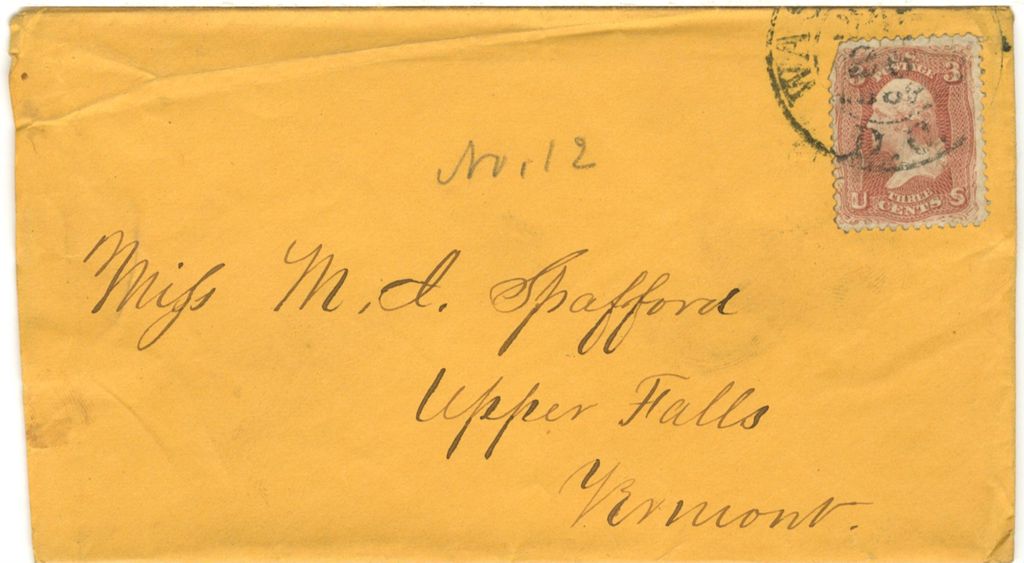 WA
D.C.
POSTAGE 3
U S
THREE
CENTS
No. 12
Miss M. A. Spafford
Upper Falls
Vermont.